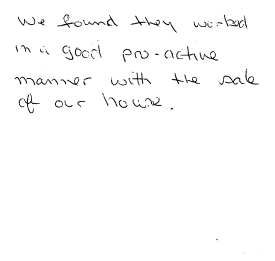 We found they worked
in a good pro-active
manner with the sale
of our house.